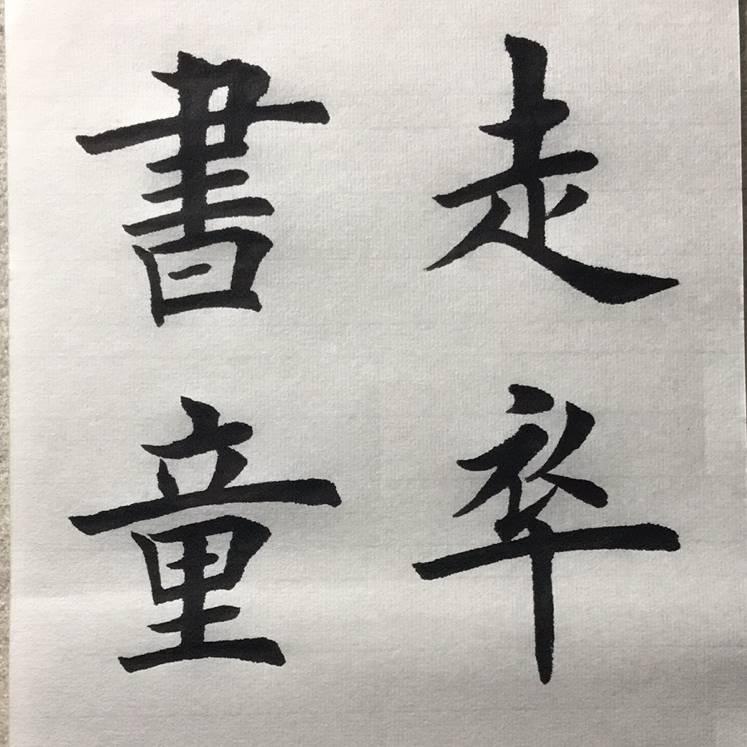 走卒
書童